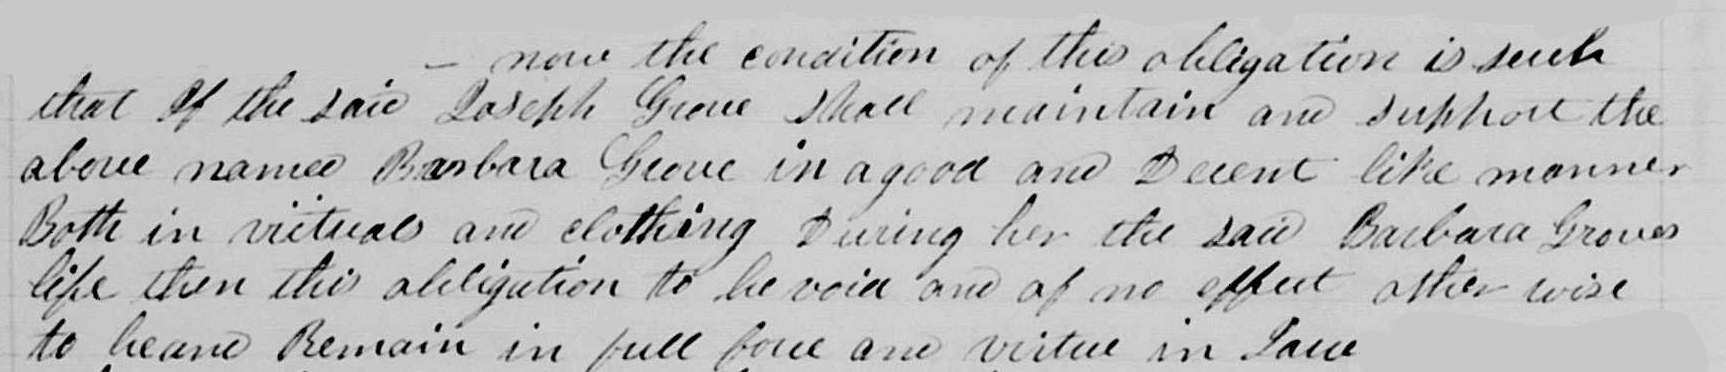 – now the condition of this obligation is such
that If the said Joseph Grove shall maintain and support the
above named Barbara Grove in a good and Decent like manner
Both in victuals and clothing During her the said Barbara Groves
life then this obligation to be void and of no effect other wise
to be and Remain in full force and virtue in Law